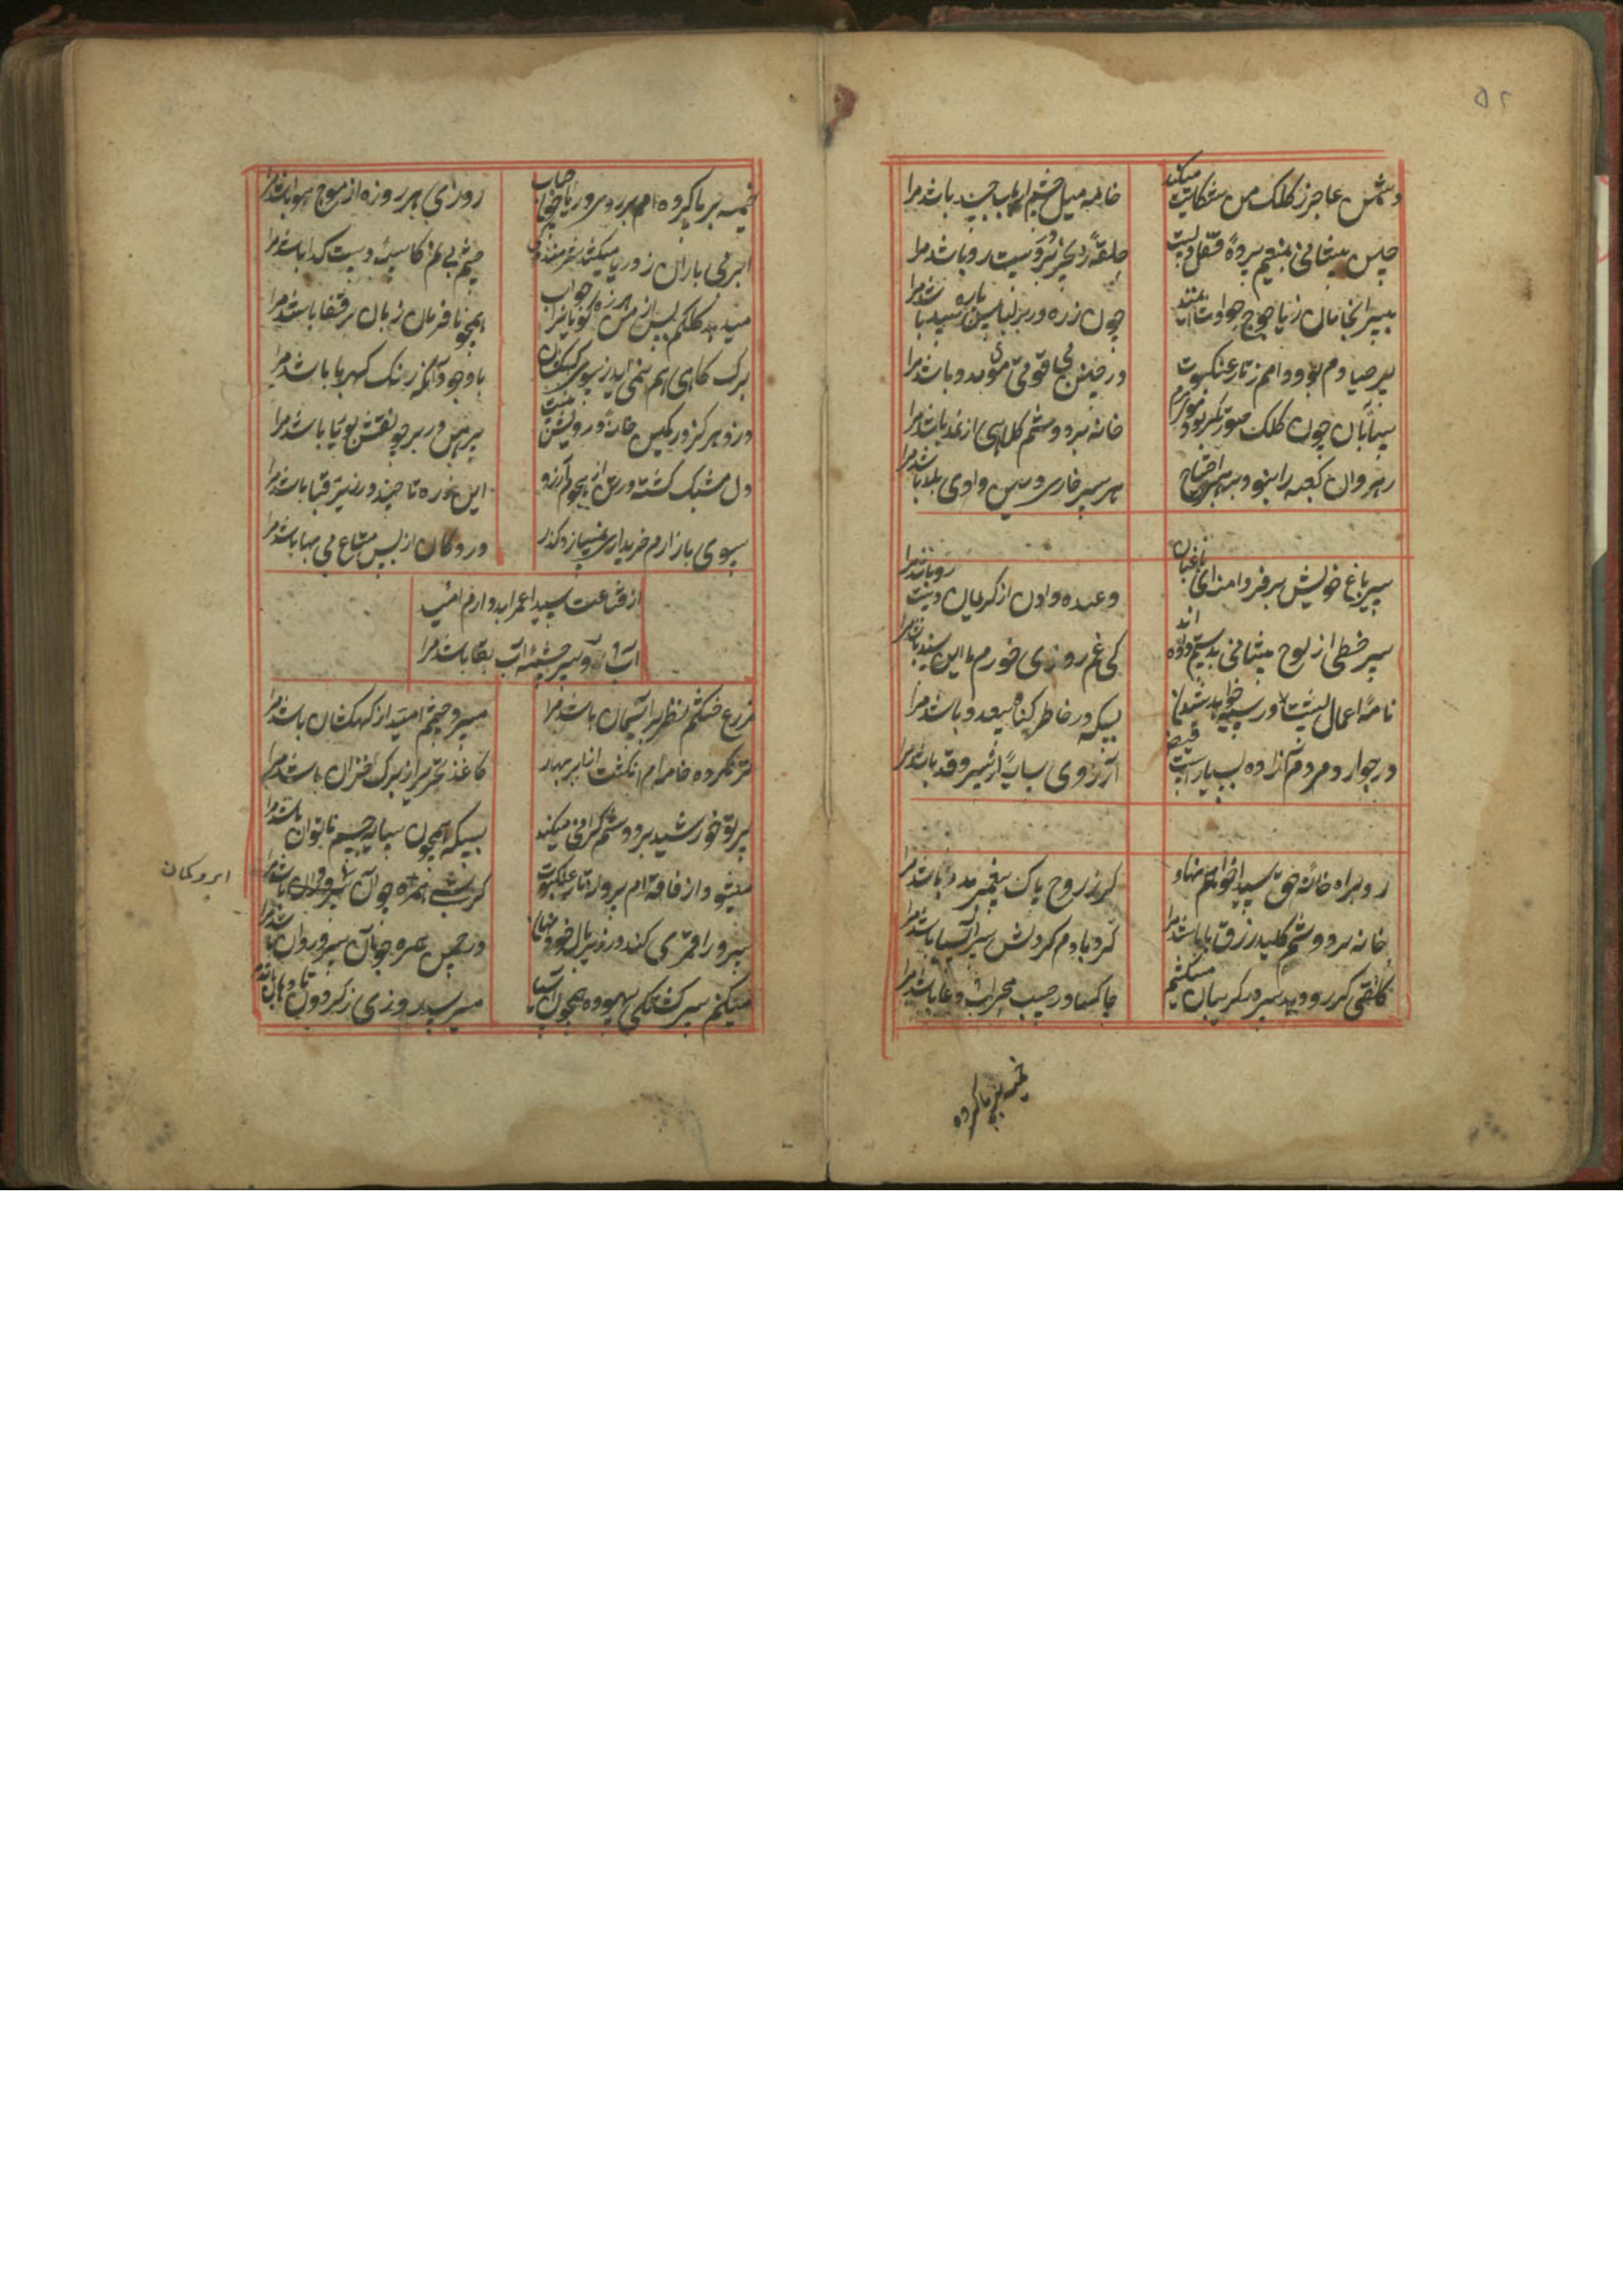 ۵۲
دشمن عاجز ز کلک من شکایت میکند
خامه میل چشم ارباب حسد باشد مرا
چین پیشانی منعم پرده قفل دلیست
حلقه زنجیر در
چون زره در بر لباس پاره باشد مرا
پیر صیادم بود دامم ز تار عنکبوت
در چنین بی قوتی موی مدد باشد مرا
چون کلک مصور
خانه بر دوشم کلاهی از نمد باشد مرا
رهروان کعبه را نبود بهر احتیاج
هر سر خاری درین وادی بلد باشد مرا
سیر باغ خویش مفروامن ای باغبان
وعده دادن از کریمان
سر خطی از لوح پیشانی بدستم داده اند
کی غم روزی خورم تا این سند باشد مرا
نامه اعمال
بسکه در خاطر گناه بیعدد باشد مرا
در جوار مردم آزاده بسیار است فیض
آرزوی سایه از سرو قد باشد مرا
رو براه خانه حق سیدا خواهم نهاد
گر ز روح پاک پیغمبر مدد باشد مرا
خانه بر دوشم کلید رزق پا باشد مرا
گردبادم گردش سر آسیا باشد مرا
میکشم
چاکها در جیب محراب دعا باشد مرا
خیمه بر پا کرده
خیمه بر پا کرده ام بر روی دریا چون حباب
روزی هر روزه از موج هوا باشد مرا
ابر بی باران ز دریا میکشد شرمندگی
چشم بی نم کاسه دست گدا باشد مرا
میدهد کلکم پس از من هرزه گویان را جواب
همچو نافرمان زبان در قفا باشد مرا
برگ کاهی هم نمی آید ز سوی کهکشان
با وجود آنکه رنگ کهربا باشد مرا
دزد هرگز در کمین خانه درویش نیست
پیرهن در بر چو نقش بوریا باشد مرا
دل مشبک گشته در تن از هجوم آرزو
این زره تا چند در زیر قبا باشد مرا
سوی بازارم خریداری نمی سازد گذر
در دکان از بس متاع بی بها باشد مرا
از قناعت سیدا عمر ابد دارم امید
آب رو سرچشمه آب بقا باشد مرا
مزرع خشکم نظر بر آسمان باشد مرا
سر و چشم امید از کهکشان باشد مرا
تر نکرده خامه ام انگشت از ابر بهار
کاغذ تحریر از برگ خزان باشد مرا
پرتو خورشید بر دوشم گرانی میکند
بسکه همچون سایه جسم ناتوان باشد مرا
میشود از فاقه ام پرواز تار عنکبوت
ابرو کمان
سرو را قمری کند در زیر بال خود نهان
در چمن جو آن سرو روان باشد مرا
میکنم سرگشتگی بیهوده همچون آسیا
میرسد روزی ز گردون تا دهان باشد مرا